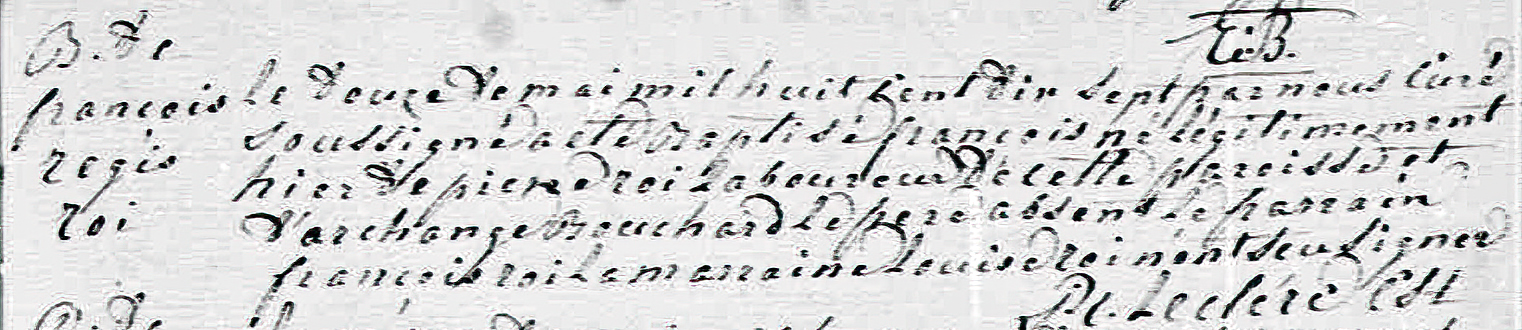 B. de
françois
regis
roi
le douze de mai mil huit cent dix sept par nous curé
soussigné a eté baptisé françois né légitimement
hier de pierre roi laboureur de cette paroisse et
d'archange Bouchard le pere absent le parrain
françois roi la marraine Louise roi n'ont seu signer
Leclerc
B. de